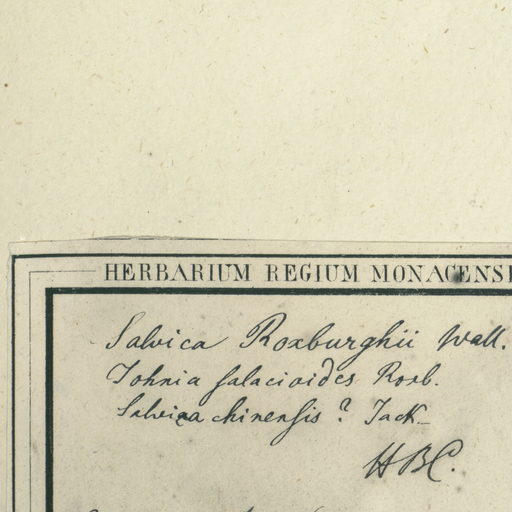 HERBARIUM REGIUM MONACENS
Salvica Roxburghii Wall.
Johnia salacioides Roxb.
Salvica chinensis? Jack
HBC.